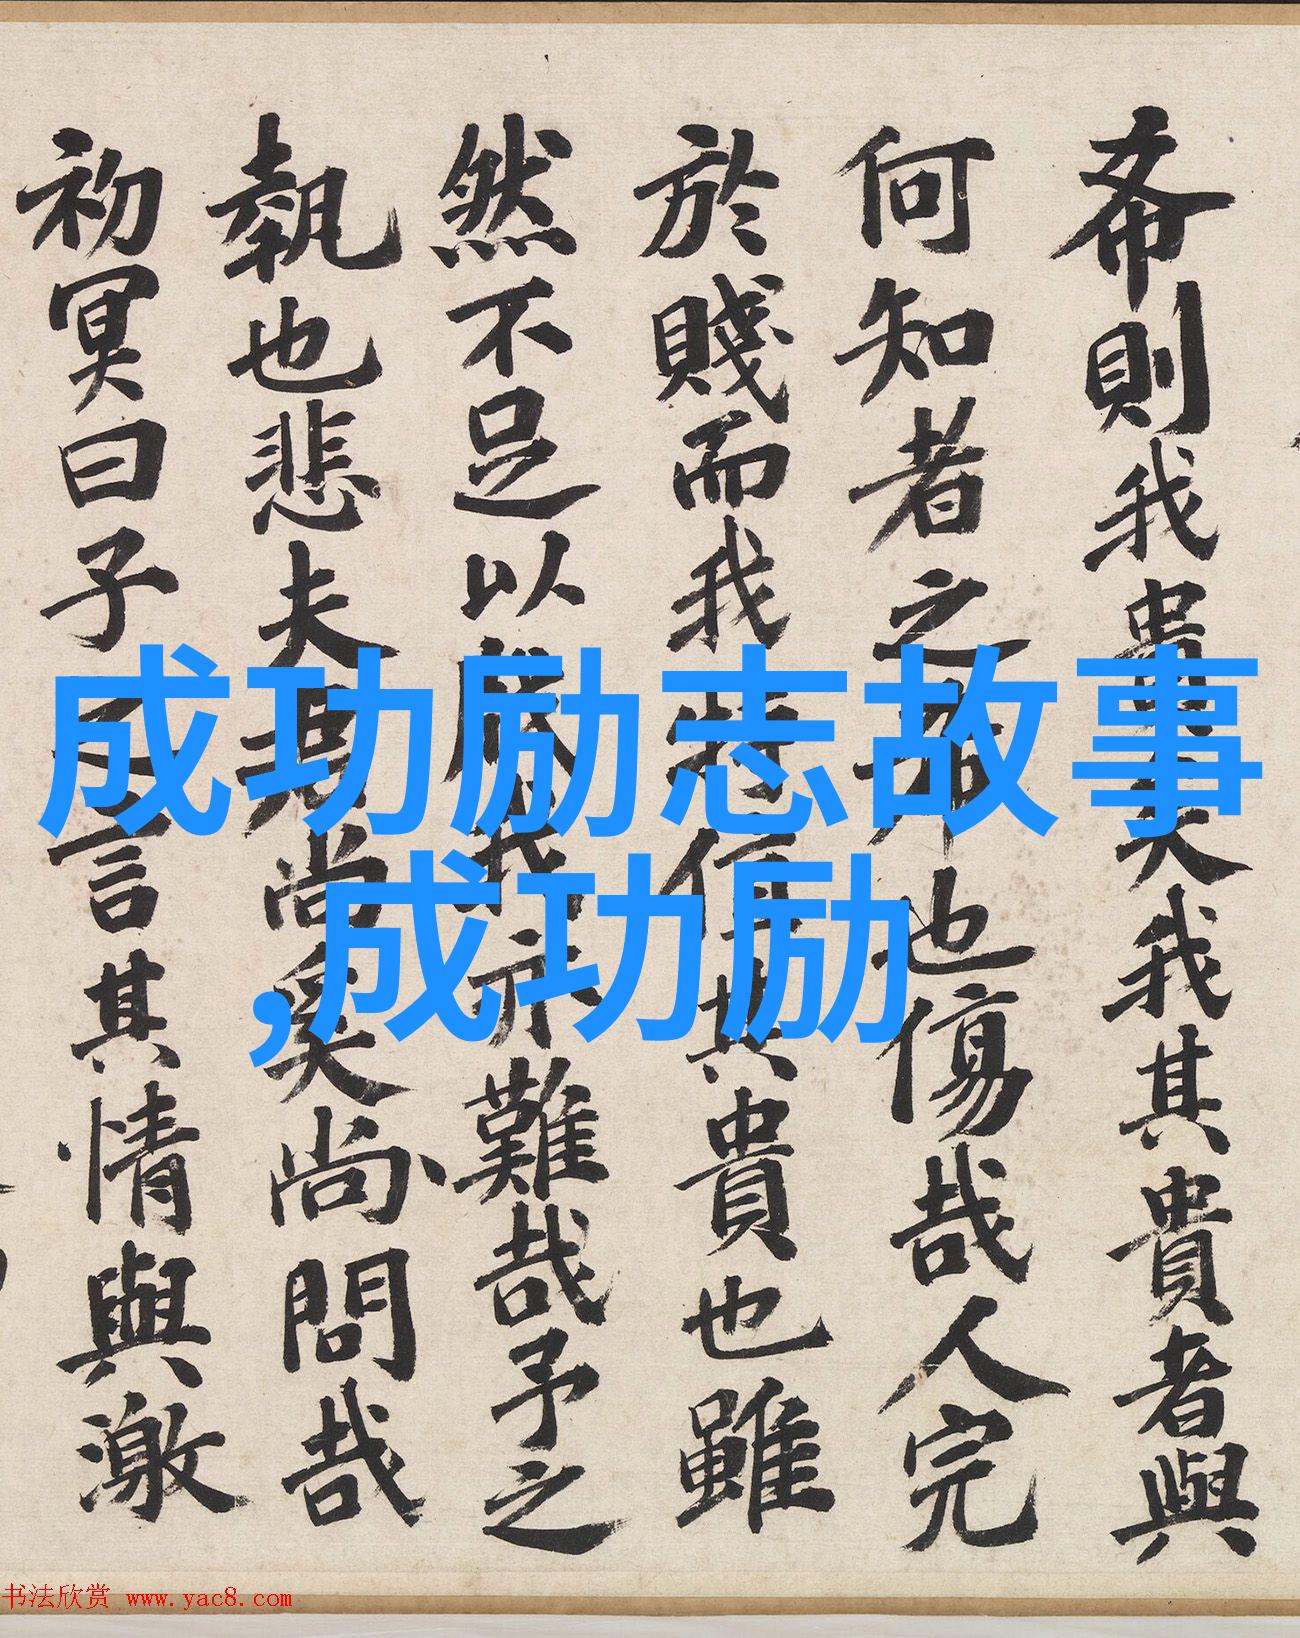 希則我貴矣我其貴者與
何知者之也傷哉人完
於賤而我特信其貴也雖
然不足以勝我亦難哉予之
執也悲夫尚矣尚問哉
初冥曰子又言其情與激
成功励志故事
,成功励
书法欣赏 www.yac8.com